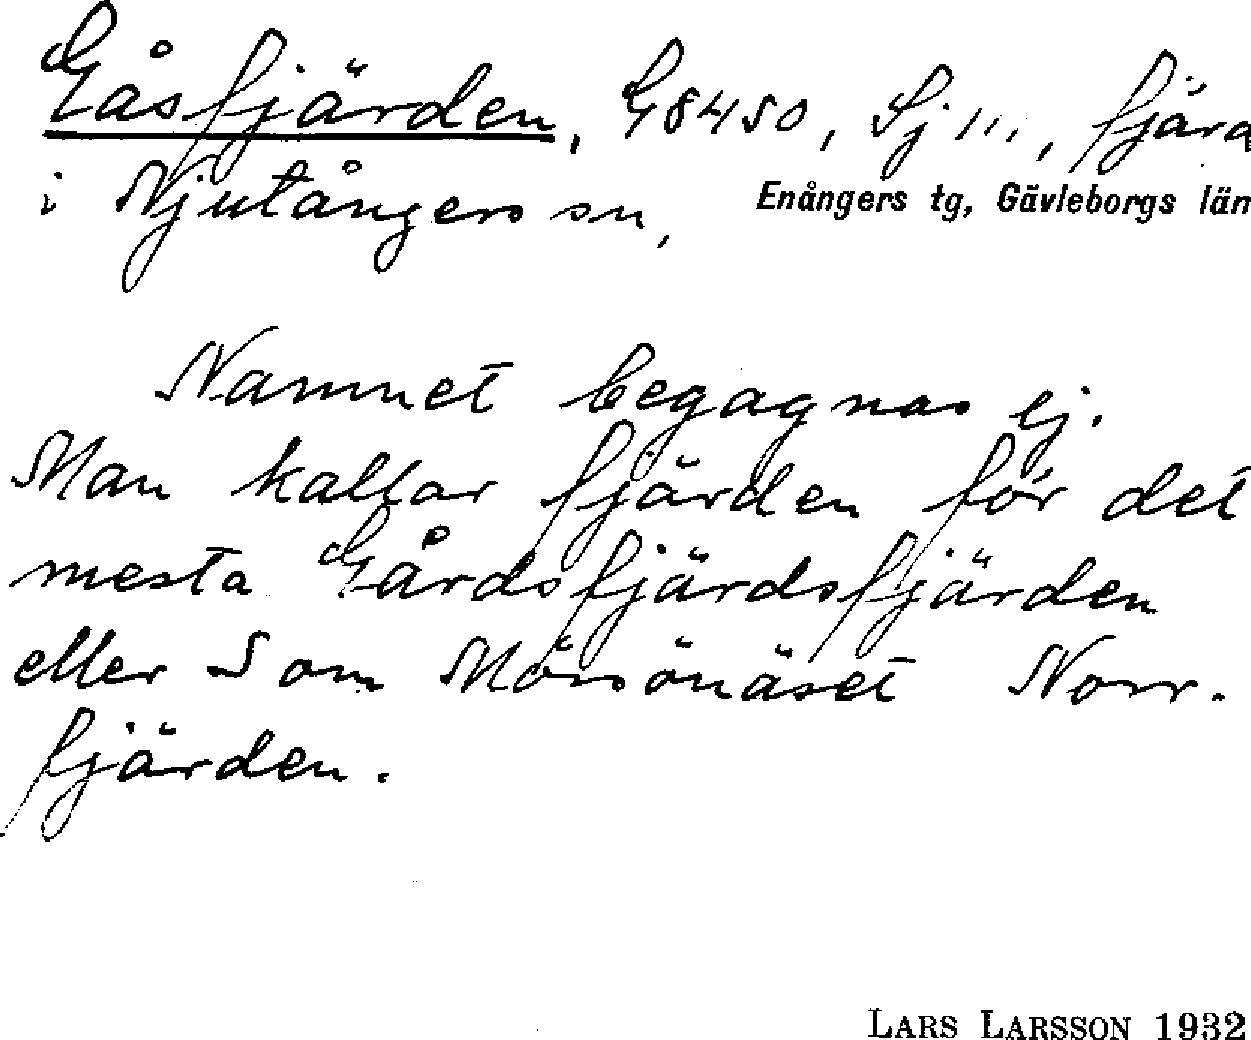 Gåsfjärden, G8450, Sj 111, fjärd
i Njutångers sn,
Enångers tg, Gävleborgs län
Namnet begagnas ej.
Man kallar fjärden för det
mesta Gårdsfjärdsfjärden
eller S om Mörsönäset Norr-
fjärden.
LARS LARSSON 1932